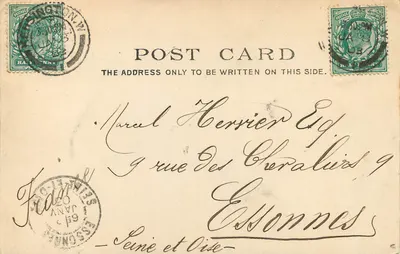 PADDINGTON.W
HALFPENNY
POST CARD
THE ADDRESS ONLY TO BE WRITTEN ON THIS SIDE.
Marcel Herrier Esq
9 rue des Chevaliers 9
Essonnes
Seine et Oise
ESSONNES
SEINE-ET-OISE
JANV